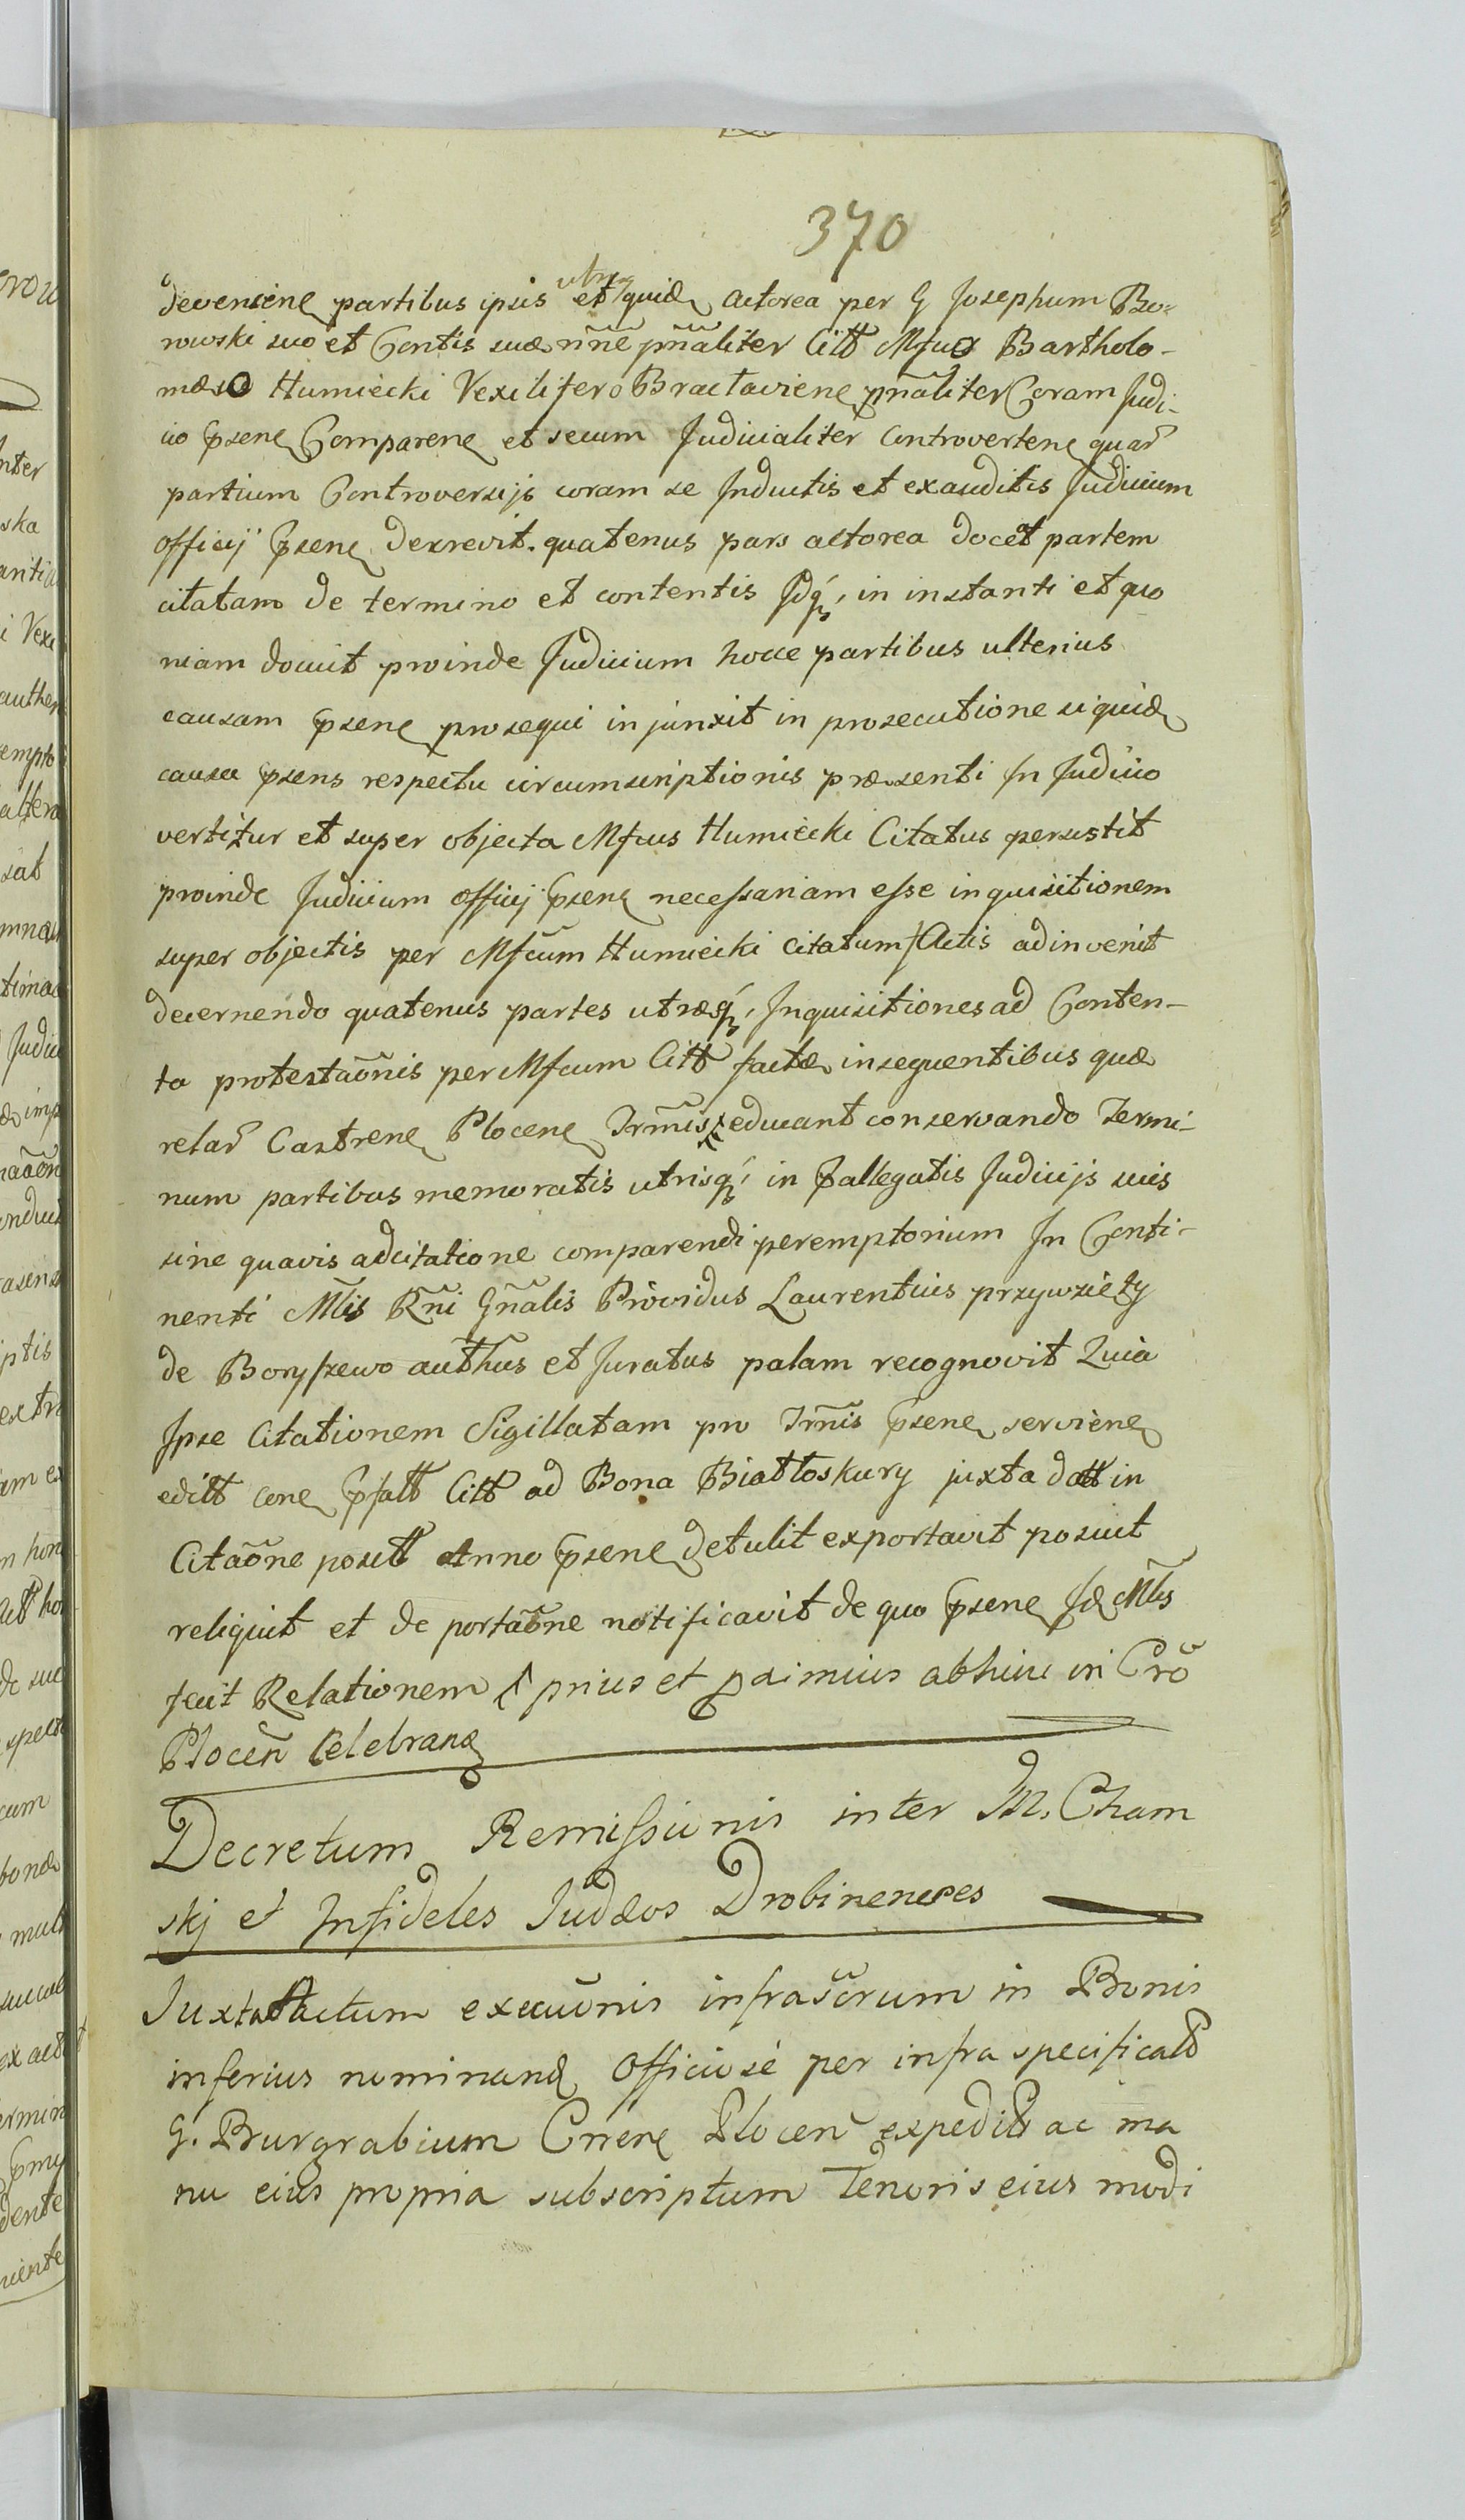 370
devenien partibus ipsis et utrisq quid actorea per G Josephum Bo-
rowski suo et Contis suæ nne pnaliter Citt Mfco Bartholo-
mæo Humiecki Vexilifero Bractavien pnaliter Coram Judi-
cio psen Comparen et secum Judicialiter controverten quar
partium Controversijs coram se Inductis et exauditis Judicium
officij psen decrevit. quatenus pars actorea doceat partem
citatam de termino et contentis Idq, in instanti et quo
niam docuit proinde Judicium hocce partibus ulterius
causam psen prosequi injunxit in prosecutione siquid
causa psens respectu circumscriptionis præsenti In Judicio
vertitur et super objecta Mfcus Humiecki Citatus persistit
proinde Judicium officij psen necessariam esse inquisitionem
super objectis per Mfcum Humiecki citatum factis adinvenit
decernendo quatenus partes utræq, Inquisitiones ad Conten-
ta protestaonis per Mfcum Citt factæ insequentibus quæ
relar Castren Plocen Trmis educant conservando Termi-
num partibus memoratis utrisq, in pallegatis Judicijs suis
sine quavis adcitatione comparendi peremptorium In Conti-
nenti Mlis Rni Gnalis Providus Laurentius przywziety
de Boryszewo authus et Juratus palam recognovit Quia
Ipse Citationem Sigillatam pro Trmis psen servien
editt con pfatt Citt ad Bona Białłoskury juxta datt in
Citaone positt Anno psen detulit exportavit posuit
reliquit et de portaone notificavit de quo psen Id Mlis
fecit Relationem prius et pximius abhinc in Cro
Plocen Celebrand
Decretum Remissionis inter M. Cham
skj et Infideles Judæos Drobinenses
Juxta Actum execuonis infrascrum in Bonis
inferius nominand Officiose per infra specificatt
G. Burgrabium Crren Plocen expeditt ac ma
nu eius propria subscriptum Tenoris eius modi